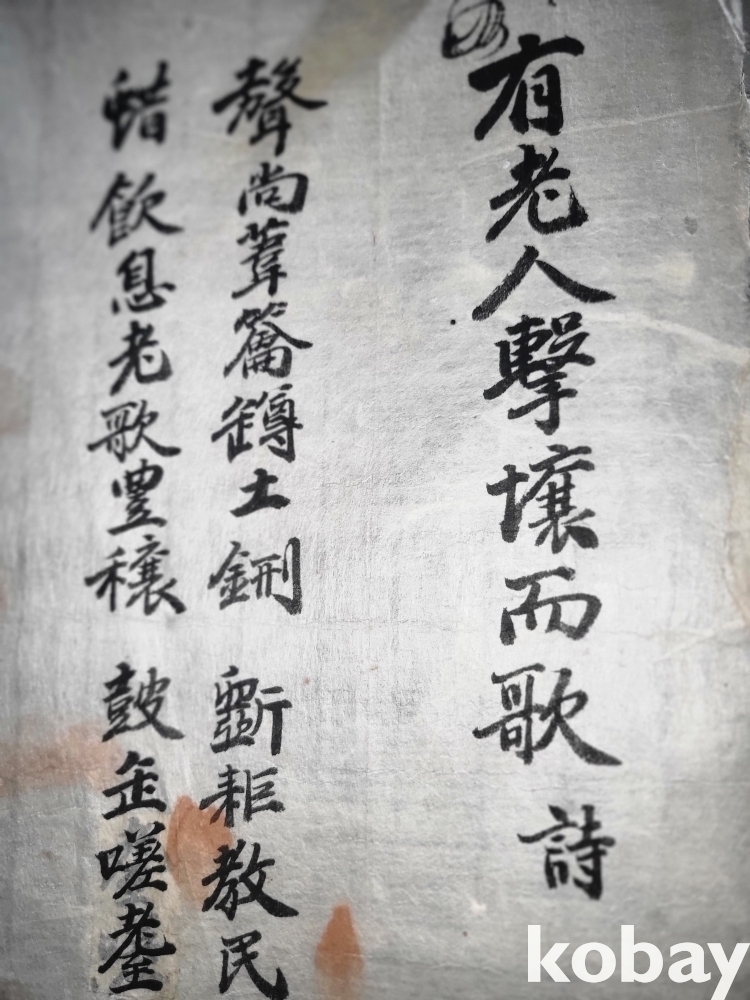 有老人擊壤而歌 詩
聲尚葦籥罇土鉶 斲耟教民
蜡飲息老歌豊穰 皷缶嗟耋
kobay